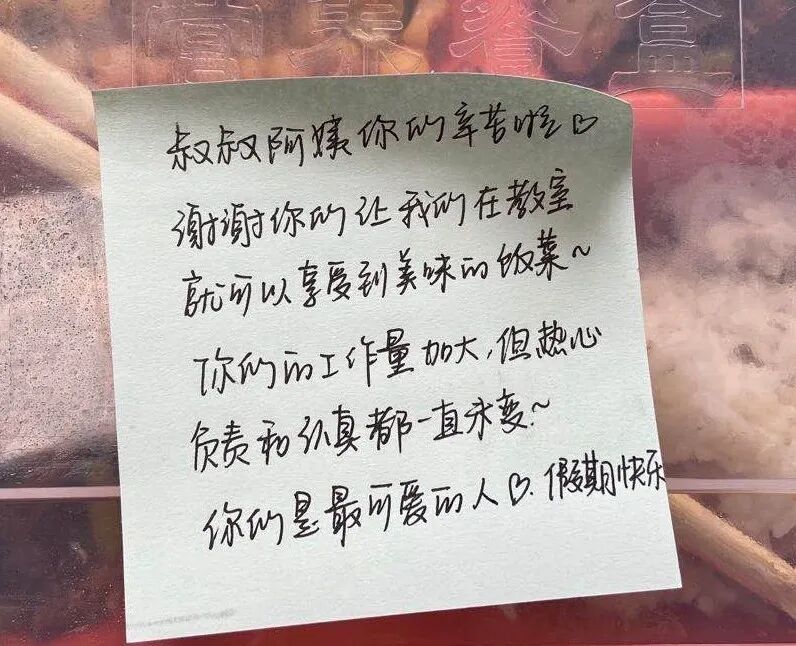 营养餐盒
叔叔阿姨你们辛苦啦♡
谢谢你们让我们在教室
就可以享受到美味的饭菜~
你们的工作量加大,但热心
负责和认真都一直未变~
你们是最可爱的人♡.假期快乐